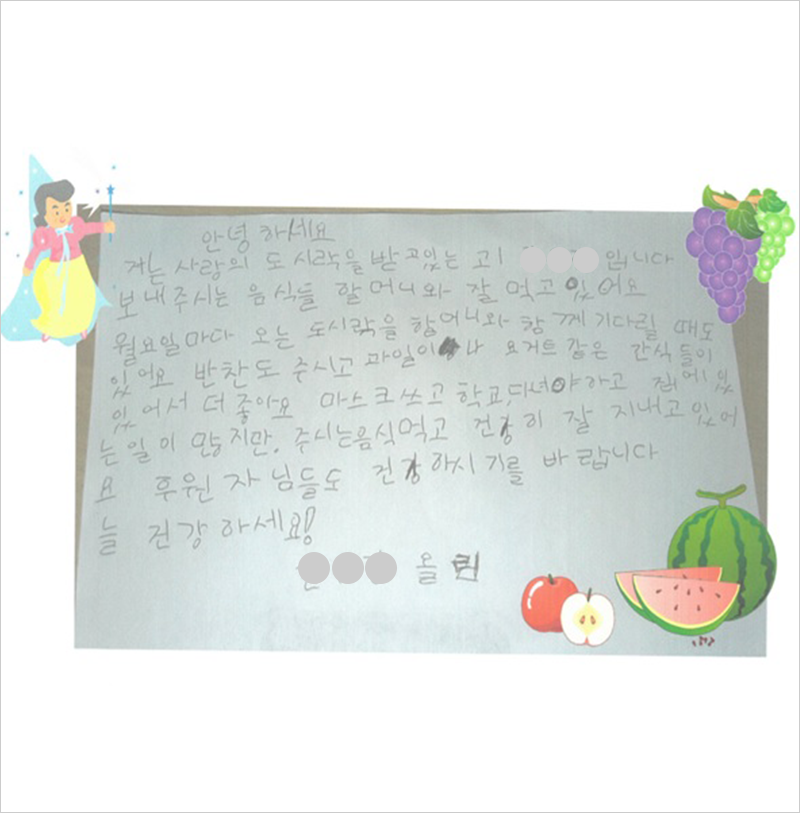 안녕하세요
저는 사랑의 도시락을 받고있는 고1 입니다
보내주시는 음식들 할머니와 잘 먹고 있어요
월요일마다 오는 도시락을 할머니와 함께 기다릴 때도
있어요 반찬도 주시고 과일이나 요거트 같은 간식들이
있어서 더 좋아요 마스크쓰고 학교다녀야하고 집에 있
는일이 많지만, 주시는음식먹고 건강히 잘 지내고있어
요 후원자님들도 건강하시기를 바랍니다
늘 건강하세요!
올림